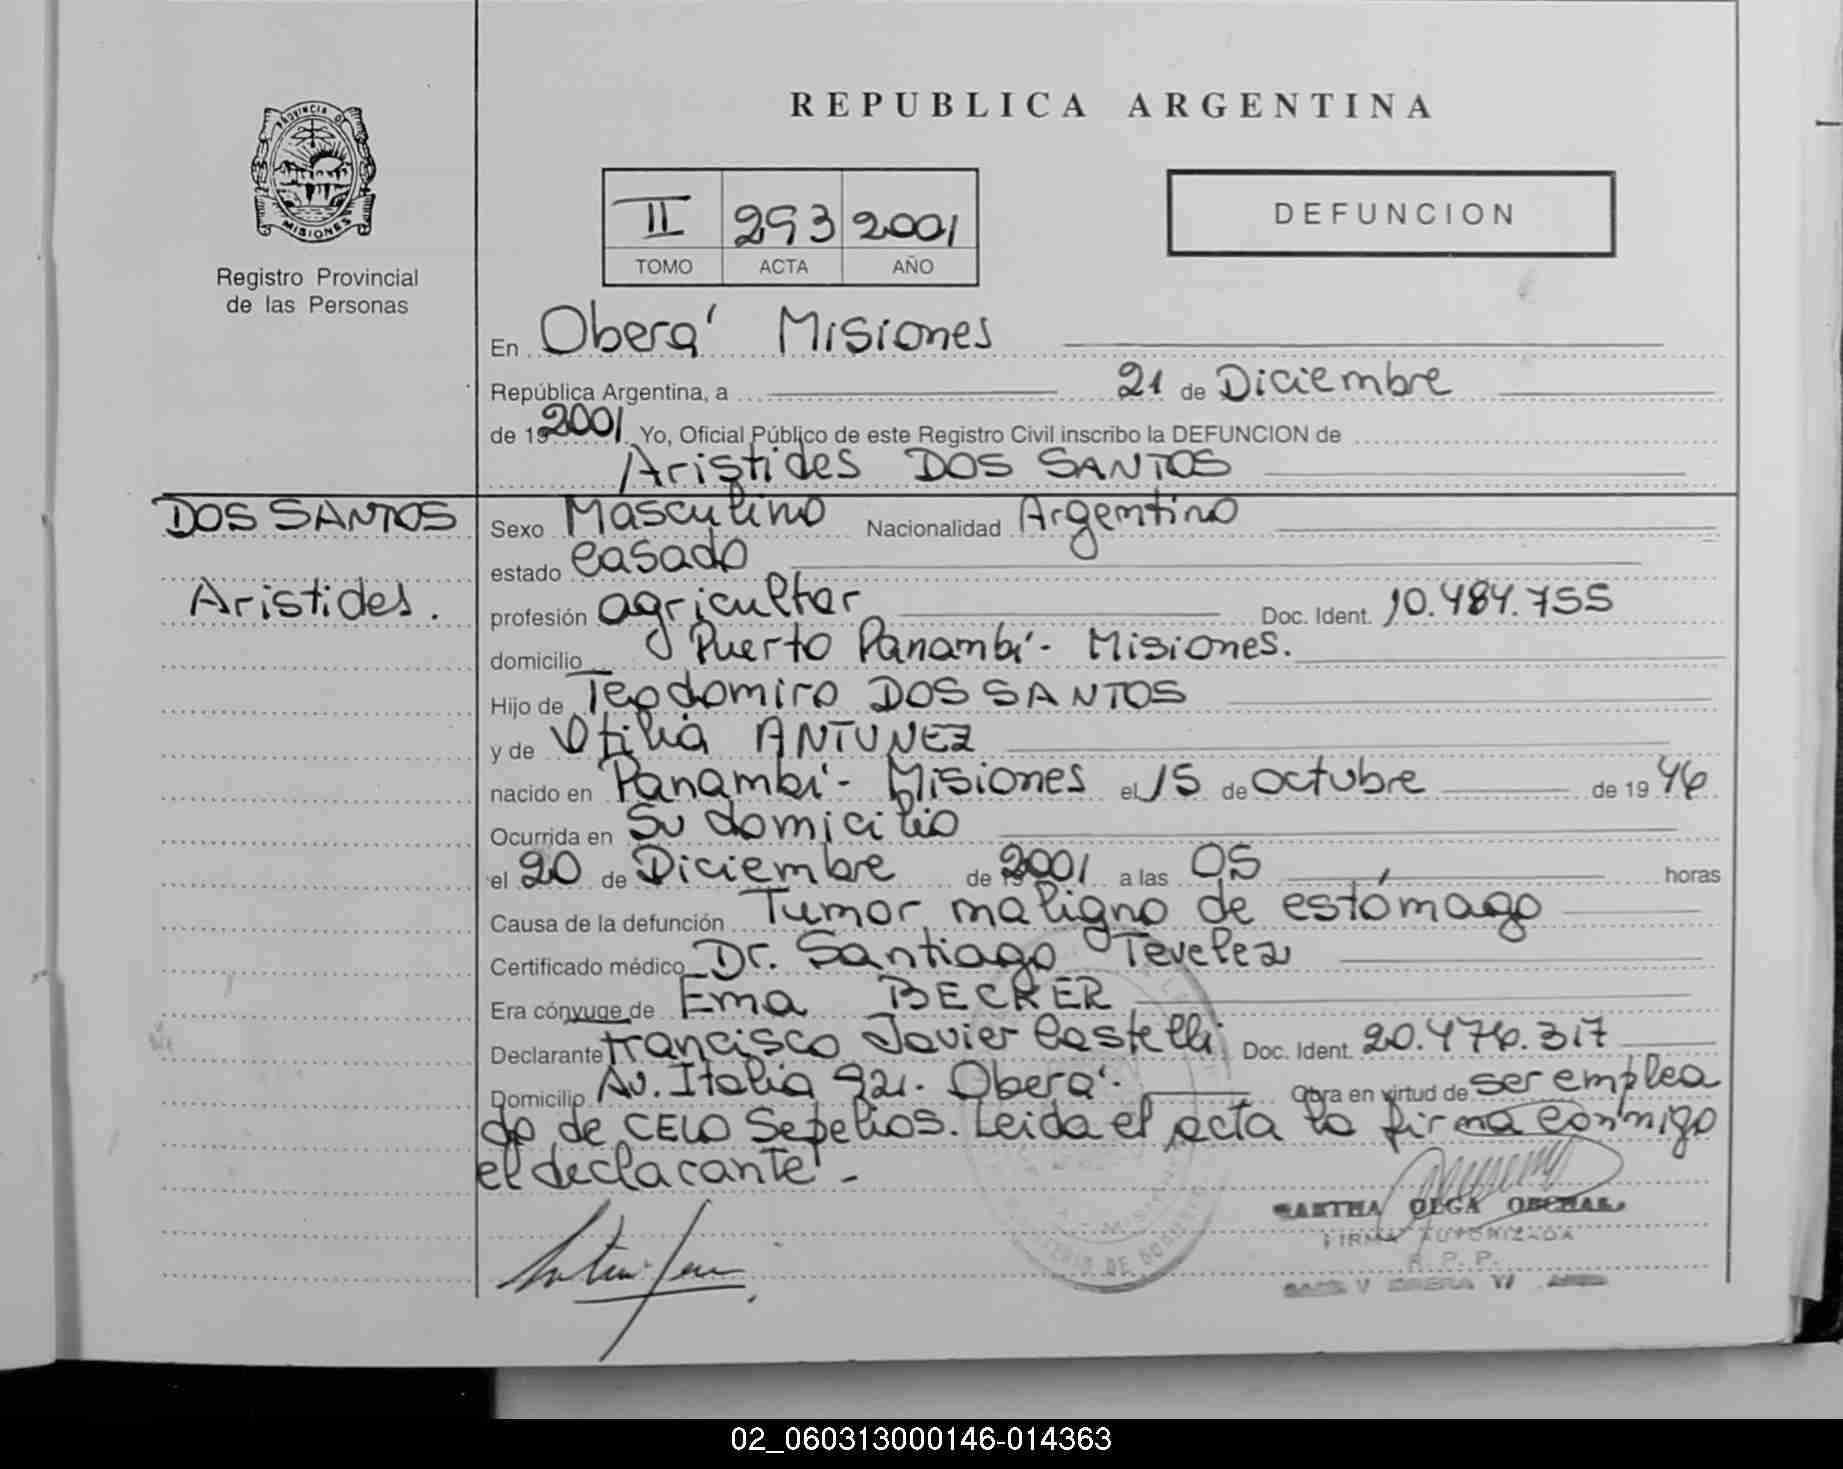 PROVINCIA DE
MISIONES
Registro Provincial
de las Personas
REPUBLICA ARGENTINA
II 293 2001
TOMO ACTA AÑO
DEFUNCION
En Oberá Misiones
República Argentina, a 21 de Diciembre
de 192001 Yo, Oficial Público de este Registro Civil inscribo la DEFUNCION de
Aristides DOS SANTOS
DOS SANTOS
Aristides.
Sexo Masculino Nacionalidad Argentino
estado casado
profesión agricultor Doc. Ident. 10.484.755
domicilio Puerto Panambí - Misiones.
Hijo de Teodomiro DOS SANTOS
y de Otilia ANTUNEZ
nacido en Panambí - Misiones el 15 de octubre de 19 46
Ocurrida en Su domicilio
el 20 de Diciembre de 2001 a las 05 horas
Causa de la defunción Tumor maligno de estómago
Certificado médico Dr. Santiago Tevelez
Era cónyuge de Ema BECKER
Declarante Francisco Javier Castelli Doc. Ident. 20.476.317
Domicilio Av. Italia 921. Oberá. Obra en virtud de ser emplea
do de CELO Sepelios. Leida el acta la firma conmigo
el declarante -
OLGA
FIRMA AUTORIZADA
R. P. P.
02_060313000146-014363